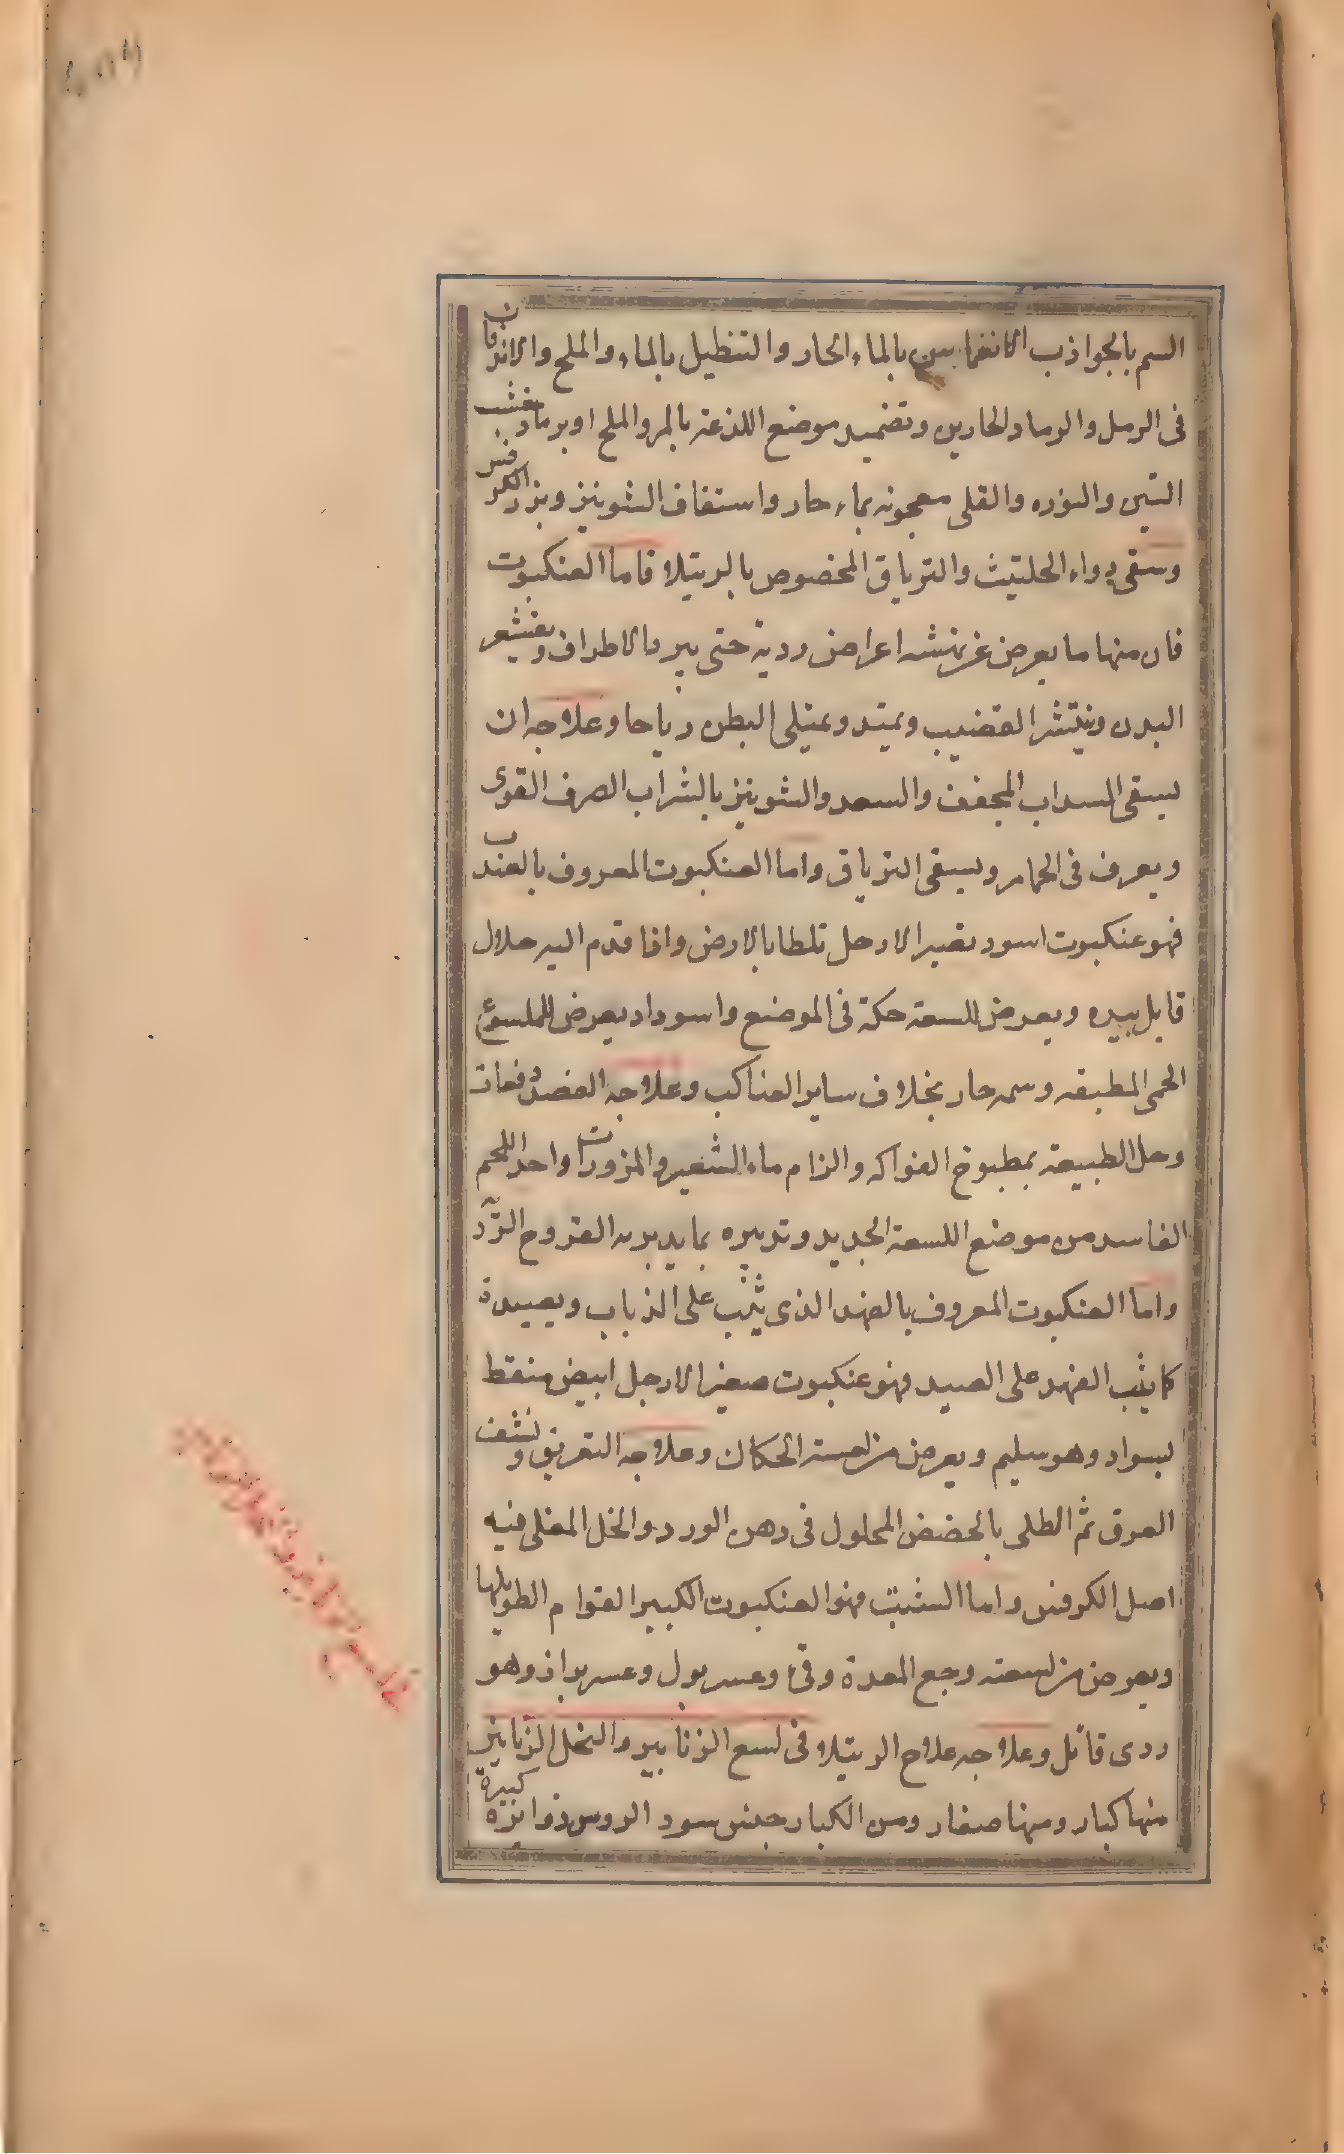 السم بالجواذب الانغماس بالماء الحار والتنطيل بالماء والملح والاندفان
فى الرمل والرماد الحارين وتضميد موضع اللذعة بالمر والملح او برماد خشب
التين والنوره والقلى معجونه بماء حار واستفاف الشونيز وبزر الكرفس
وسقى دواء الحلتيت والترياق المخصوص بالرتيلا فاما العنكبوت
فان منها ما يعرض عن نهشه اعراض ردية حتى يبرد الاطراف ويقشعر
البدن وينتشر القضيب ويمتد ويمتلى البطن رياحا وعلاجه ان
يسقى السداب المجفف والسعد والشونيز بالشراب الصرف القوى
ويعرق فى الحمام ويسقى الترياق واما العنكبوت المعروف بالعندب
فهو عنكبوت اسود قصير الارجل تلطا بالارض واذا قدم اليه خلال
قابل بيده ويعرض للسعته حكة فى الموضع واسوداد يعرض للملسوع
الحمى المطبقه وسمه حار بخلاف ساير العناكب وعلاجه الفصد دفعات
وحل الطبيعة بمطبوخ الفواكه والزام ماء الشعير والمزورات واخذ اللحم
الفاسد من موضع اللسعة الجديد وتدبيره بما يدبر به القروح الردّ
واما العنكبوت المعروف بالفهد الذى يثب على الذباب ويصيدة
كما يثب الفهد على الصيد فهو عنكبوت صغير الارجل ابيض منقط
بسواد وهو سليم ويعرض من لسعته الحكاك وعلاجه التعريق ونشف
العرق ثم الطلى بالحضض المحلول فى دهن الورد والخل المغلى فيه
اصل الكرفس واما الشبث فهو العنكبوت الكبير القوام الطويلها
ويعرض من لسعته وجع المعدة وقئ وعسر بول وعسر براز وهو
ردى قاتل وعلاجه علاج الرتيلا فى لسع الزنابير والنحل الزنابير
منها كبار ومنها صغار ومن الكبار جنس سود الروس ذو ابرة كبيرة